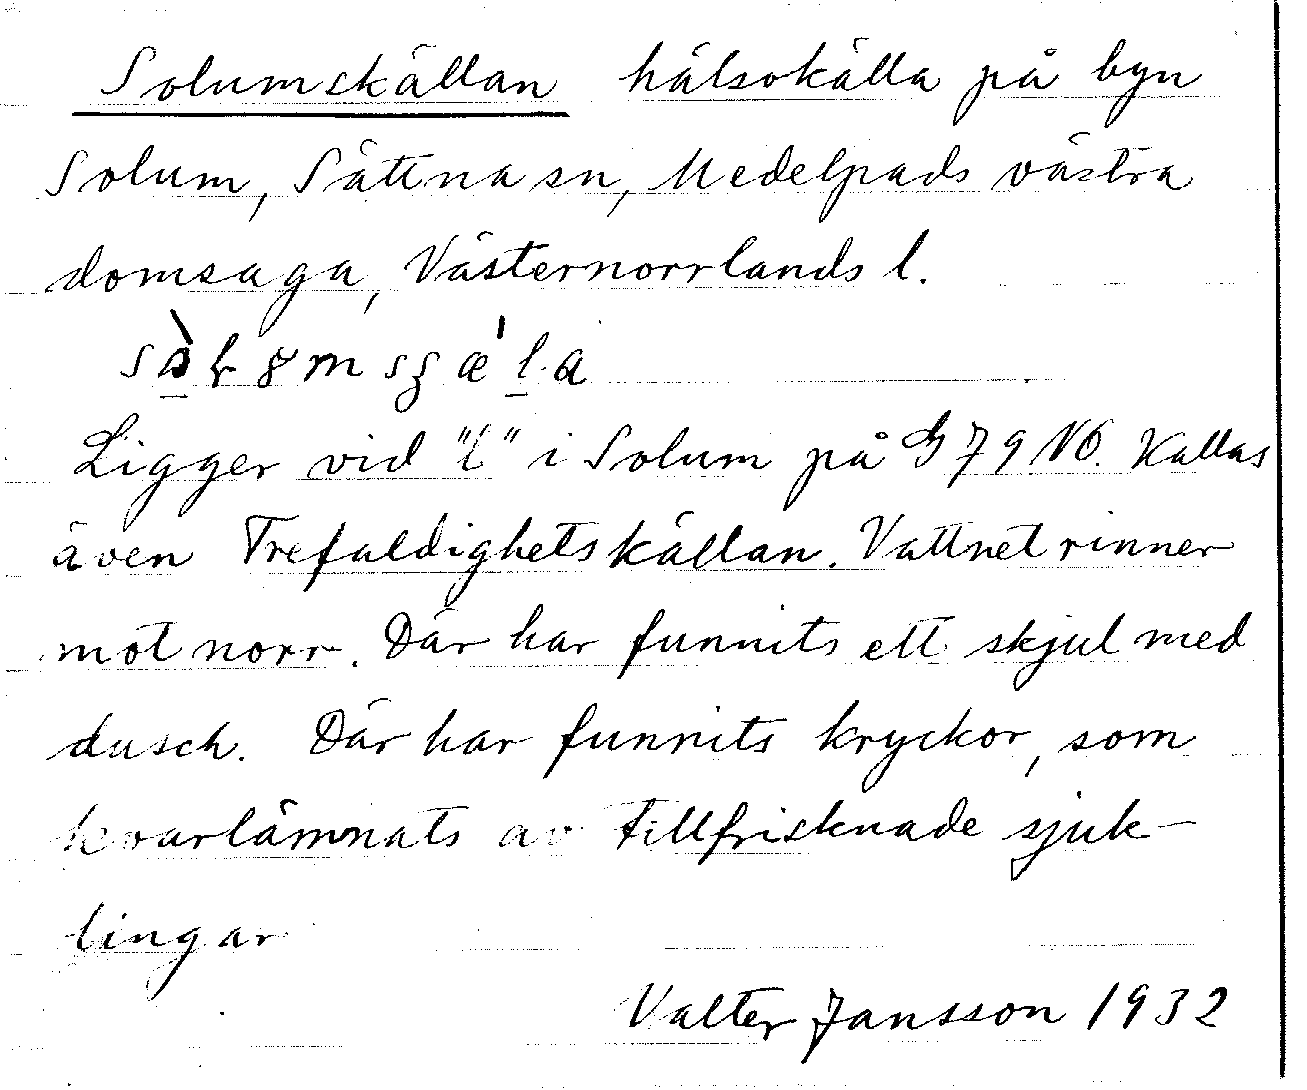 Solumskällan hälsokälla på byn
Solum, Sättna sn, Medelpads västra
domsaga, Västernorrlands l.
Ligger vid "l" i Solum på G 79 NO. Kallas
även Trefaldighetskällan. Vattnet rinner
mot norr. Där har funnits ett skjul med
dusch. Där har funnits kryckor, som
kvarlämnats av tillfrisknade sjuk-
lingar
Valter Jansson 1932